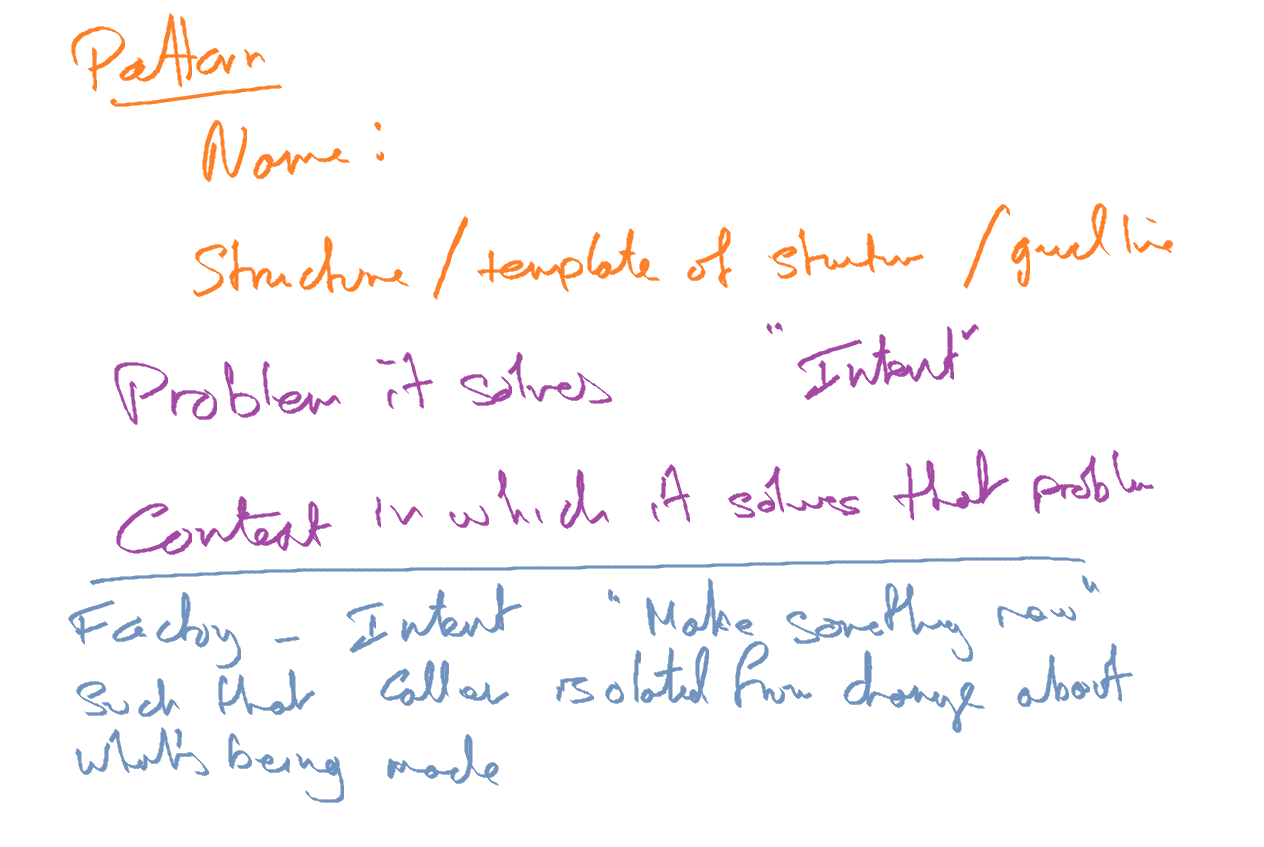 Pattern
Name:
Structure / template of structure / guideline
Problem it solves "Intent"
Context in which it solves that problem
Factory - Intent "Make something new"
Such that caller isolated from change about
what's being made